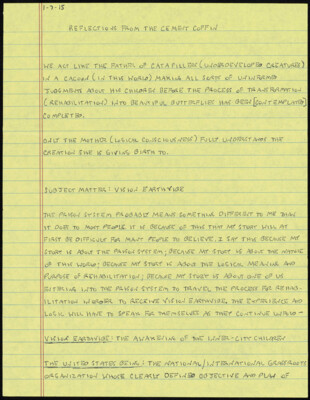 1-3-15
REFLECTIONS FROM THE CEMENT COFFIN
WE ACT LIKE THE FATHERS OF CATAPILLERS (UNDERDEVELOPED CREATURES)
IN A CACOON (IN THIS WORLD) MAKING ALL SORTS OF UNINFORMED
JUDGMENTS ABOUT HIS CHILDREN BEFORE THE PROCESS OF TRANSFORMATION
(REHABILITATION) INTO BEAUTIFUL BUTTERFLIES HAS BEEN [CONTEMPLATED]
COMPLETED.
ONLY THE MOTHER (LOGICAL CONSCIOUSNESS) FULLY UNDERSTANDS THE
CREATION SHE IS GIVING BIRTH TO.
SUBJECT MATTER: VISION EARTHWIDE
THE PRISON SYSTEM PROBABLY MEANS SOMETHING DIFFERENT TO ME THAN
IT DOES TO MOST PEOPLE. IT IS BECAUSE OF THIS THAT MY STORY WILL AT
FIRST BE DIFFICULT FOR MANY PEOPLE TO BELIEVE. I SAY THIS BECAUSE MY
STORY IS ABOUT THE PRISON SYSTEM; BECAUSE MY STORY IS ABOUT THE
OF THIS WORLD; BECAUSE MY STORY IS ABOUT THE LOGICAL MEANING AND
PURPOSE OF REHABILITATION; BECAUSE MY STORY IS ABOUT ONE OF US
ENTERING INTO THE PRISON SYSTEM TO TRAVEL THE PROCESS FOR REHAB-
ILITATION IN ORDER TO RECEIVE VISION EARTHWIDE, THE EXPERIENCE AND
LOGIC WILL HAVE TO SPEAK FOR THEMSELVES AS THEY CONTINUE
VISION EARTHWIDE: THE AWAKENING OF THE INNER-CITY CHILDREN
THE UNITED STATES BEING: THE NATIONAL/INTERNATIONAL GRASSROOTS
ORGANIZATION WHOSE CLEARLY DEFINED OBJECTIVE AND PLAN OF